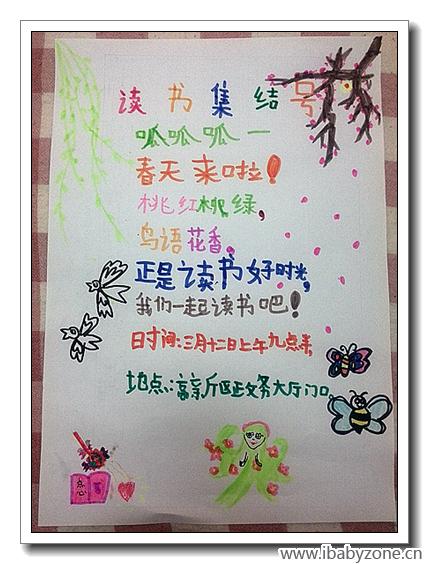 读书集结号
呱呱呱一
春天来啦！
桃红柳绿，
鸟语花香。
正是读书好时光，
我们一起读书吧！
日时间：三月十二日上午九点半
地点：高新区政务大厅门口
www.ibabyzone.cn